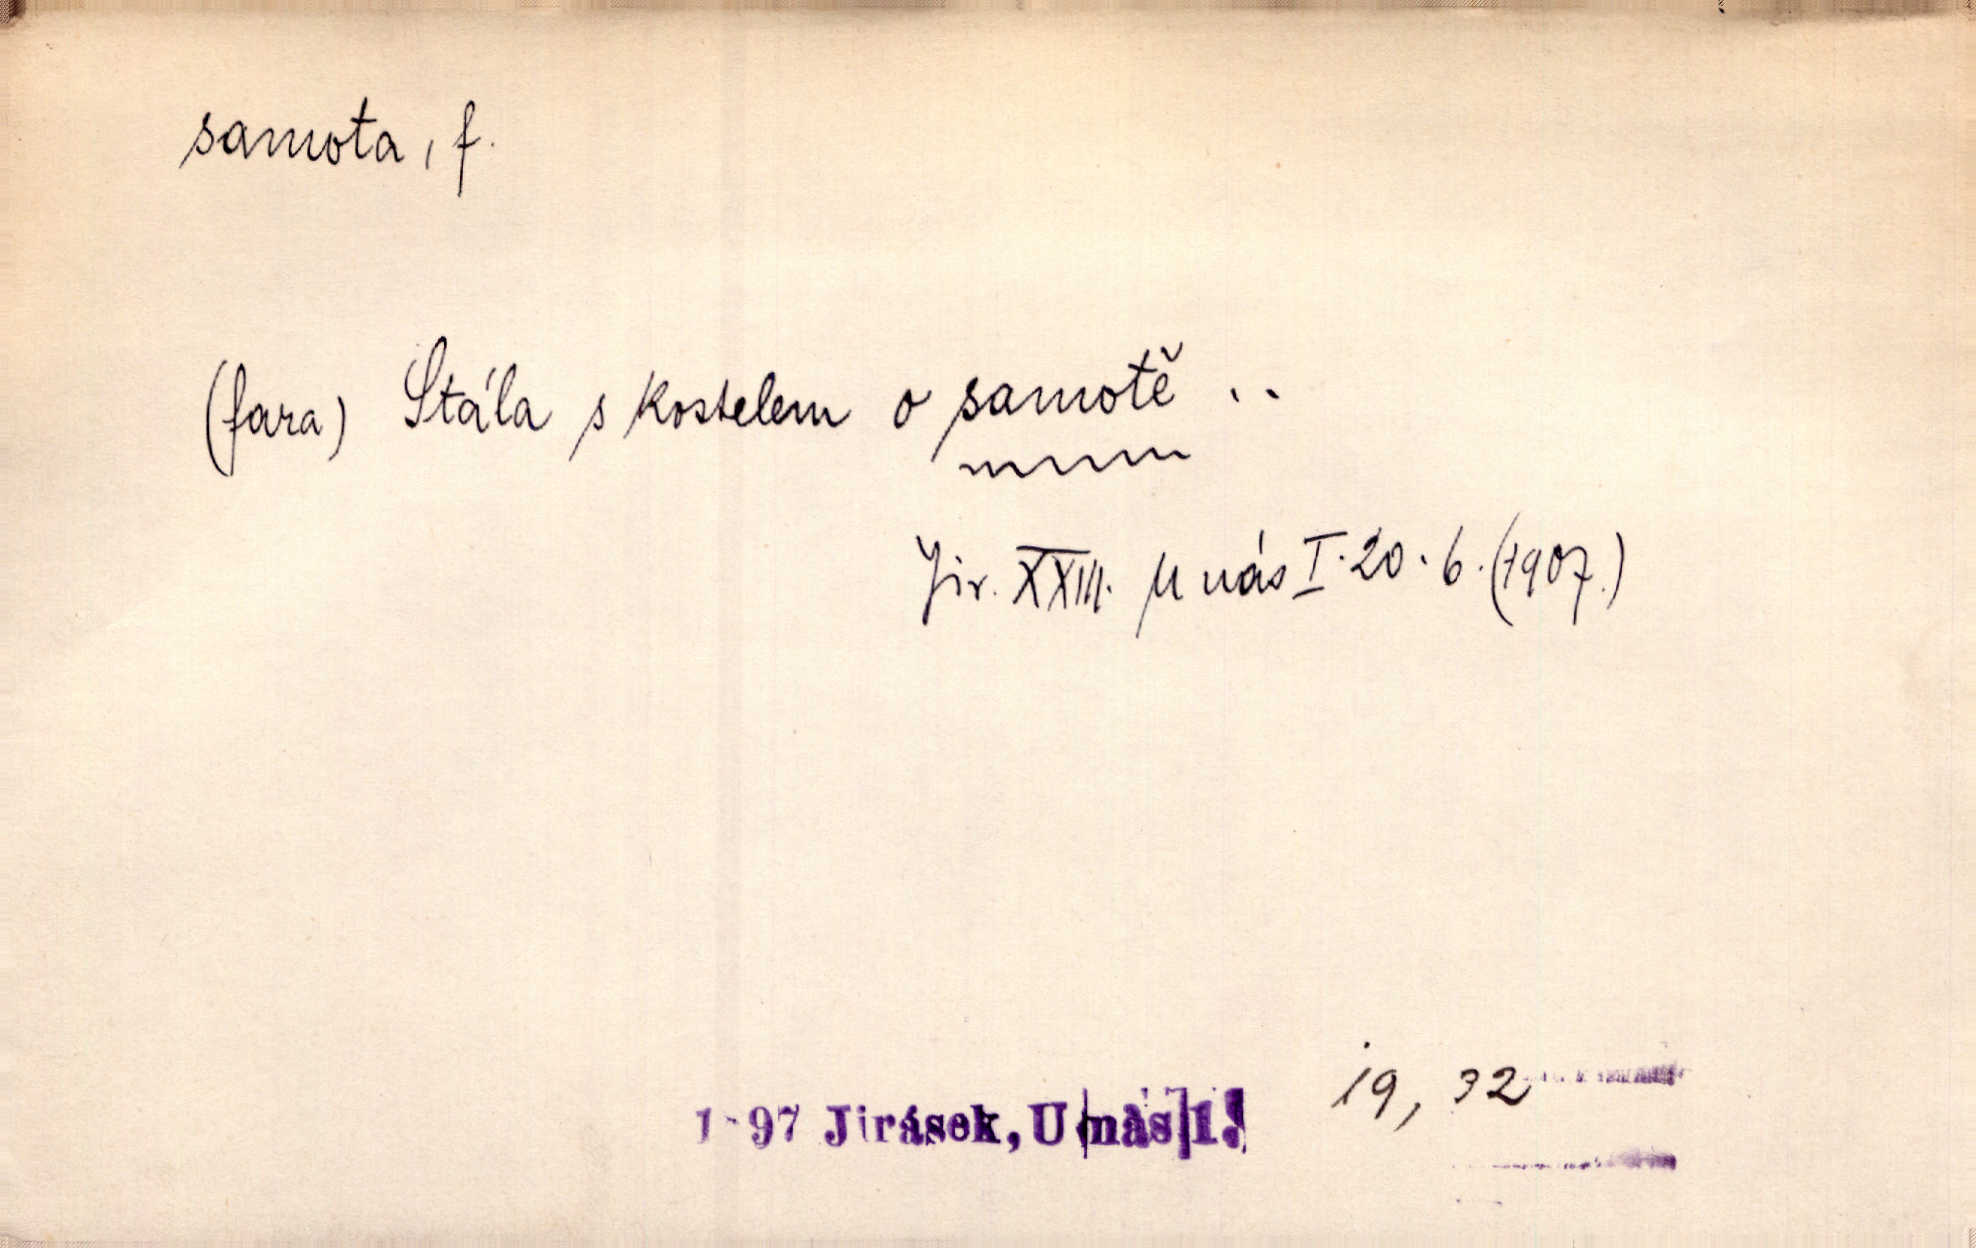 samota, f.
(fara) Stála s kostelem o samotě ..
Jir. XXIII. U nás I. 20. 6. (1907.)
1897 Jirásek, U nás 1.
19, 32